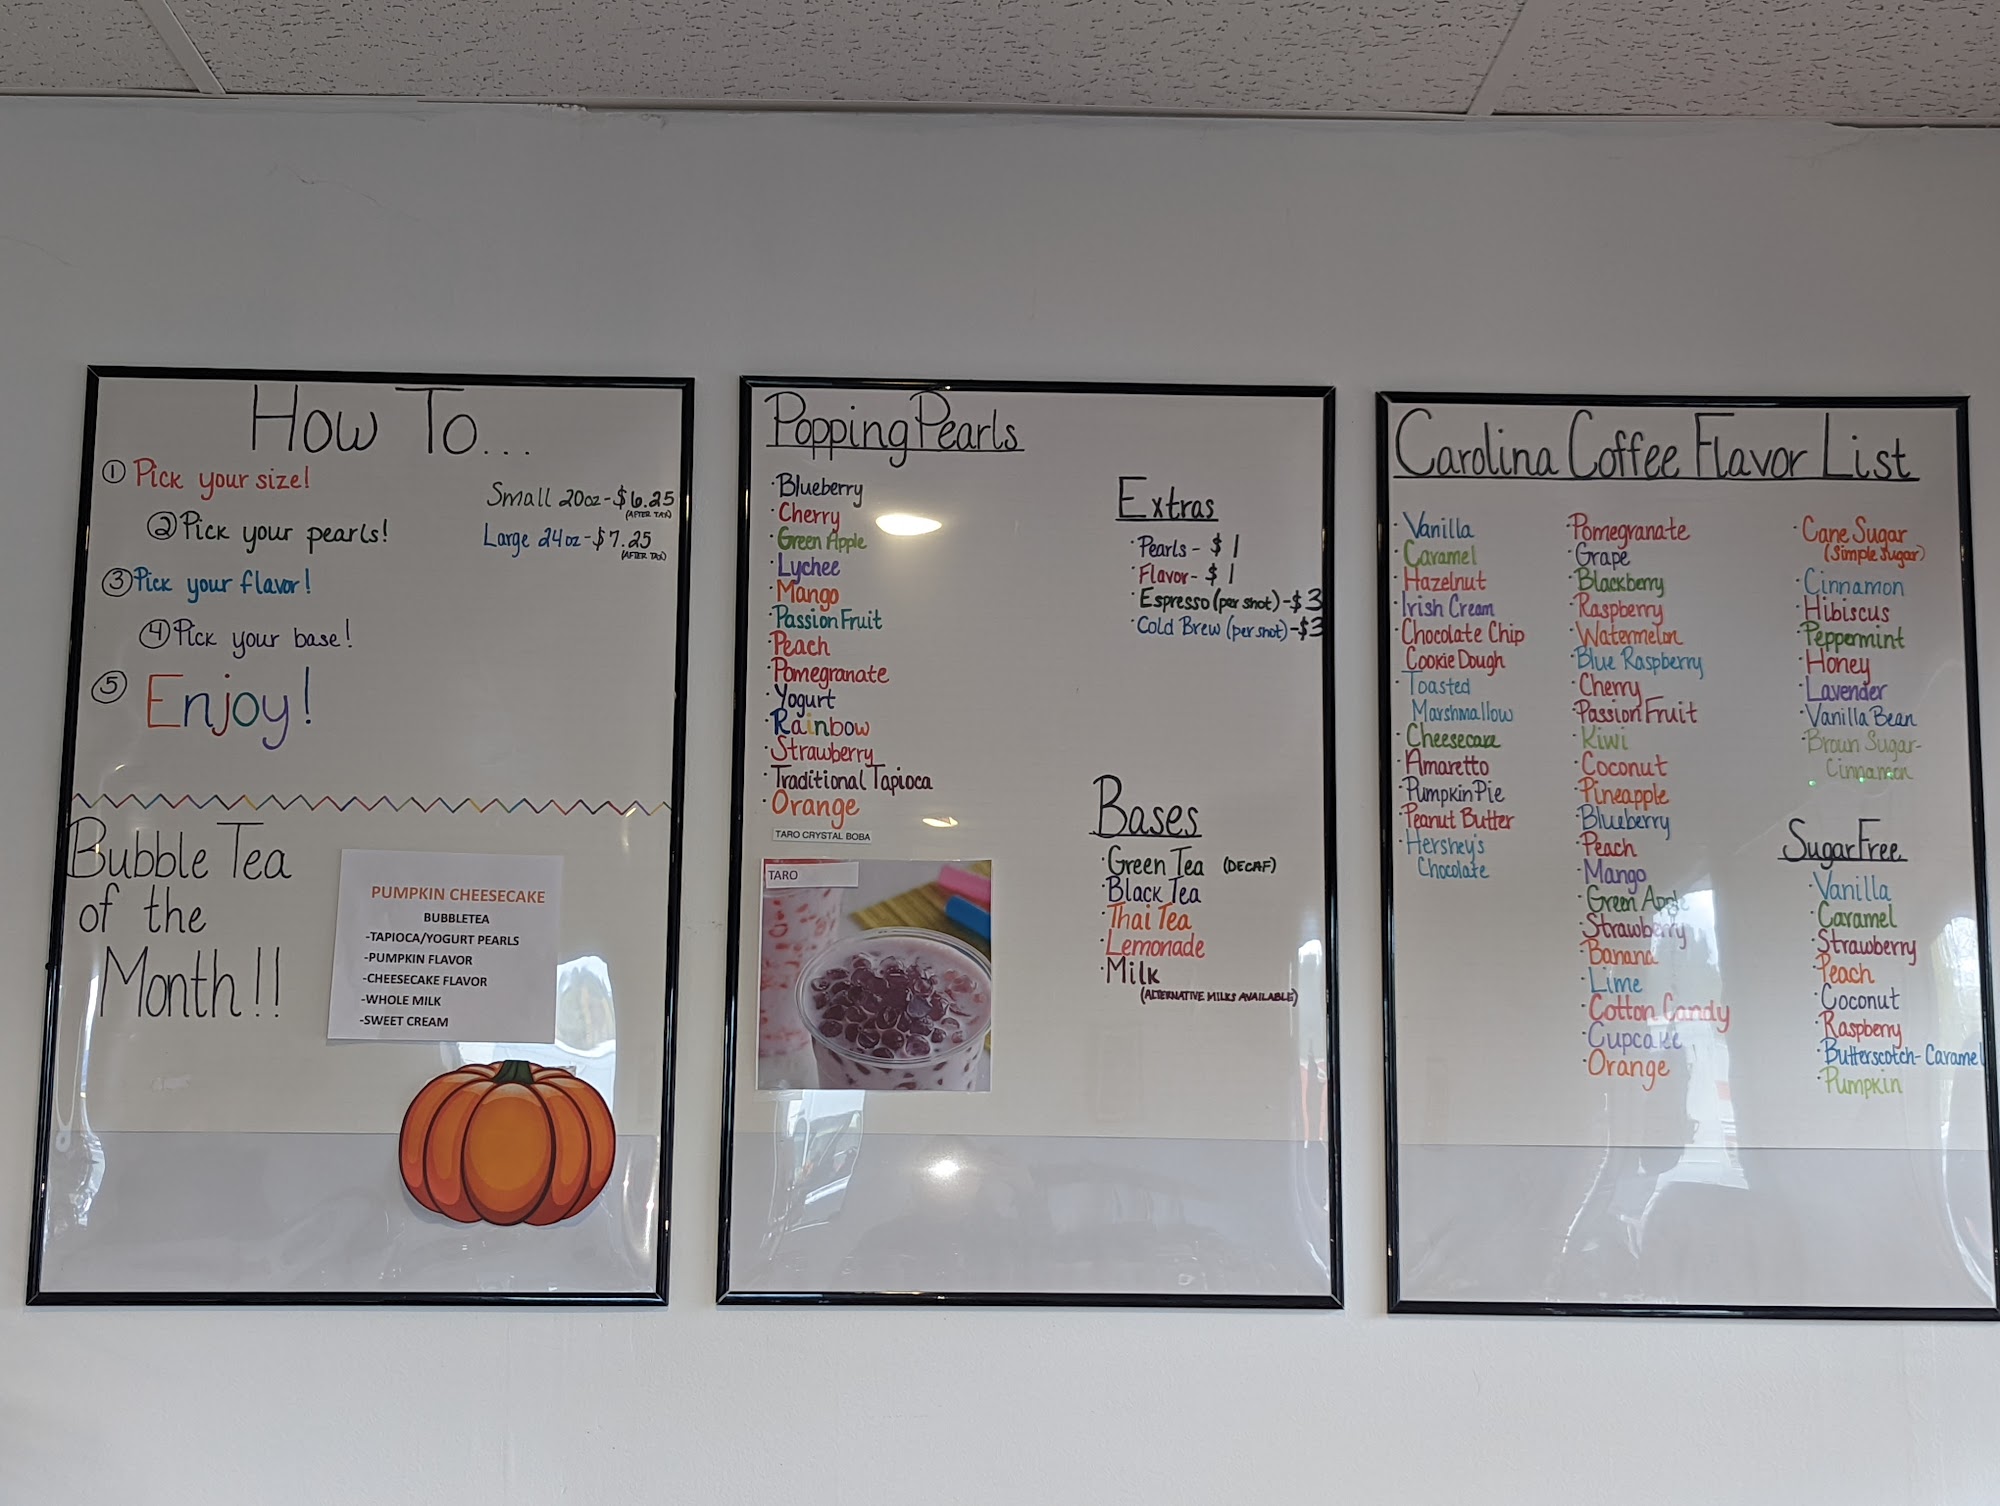 How To...
① Pick your size!
Small 20oz-$6.25
(AFTER TAX)
② Pick your pearls!
Large 24oz-$7.25
(AFTER TAX)
③ Pick your flavor!
④ Pick your base!
⑤ Enjoy!
Bubble Tea
of the
Month!!
PUMPKIN CHEESECAKE
BUBBLETEA
-TAPIOCA/YOGURT PEARLS
-PUMPKIN FLAVOR
-CHEESECAKE FLAVOR
-WHOLE MILK
-SWEET CREAM
Popping Pearls
·Blueberry
·Cherry
·Green Apple
·Lychee
·Mango
·Passion Fruit
·Peach
·Pomegranate
·Yogurt
·Rainbow
·Strawberry
·Traditional Tapioca
·Orange
TARO CRYSTAL BOBA
TARO
Extras
·Pearls - $1
·Flavor - $1
·Espresso (per shot) -$3
·Cold Brew (per shot) -$3
Bases
·Green Tea (DECAF)
·Black Tea
·Thai Tea
·Lemonade
·Milk
(ALTERNATIVE MILKS AVAILABLE)
Carolina Coffee Flavor List
·Vanilla
·Caramel
·Hazelnut
·Irish Cream
·Chocolate Chip
Cookie Dough
·Toasted
Marshmallow
·Cheesecake
·Amaretto
·Pumpkin Pie
·Peanut Butter
·Hershey's
Chocolate
·Pomegranate
·Grape
·Blackberry
·Raspberry
·Watermelon
·Blue Raspberry
·Cherry
·Passion Fruit
·Kiwi
·Coconut
·Pineapple
·Blueberry
·Peach
·Mango
·Green Apple
·Strawberry
·Banana
·Lime
·Cotton Candy
·Cupcake
·Orange
·Cane Sugar
(Simple Sugar)
·Cinnamon
·Hibiscus
·Peppermint
·Honey
·Lavender
·Vanilla Bean
·Brown Sugar-
Cinnamon
Sugar Free
·Vanilla
·Caramel
·Strawberry
·Peach
·Coconut
·Raspberry
·Butterscotch-Caramel
·Pumpkin